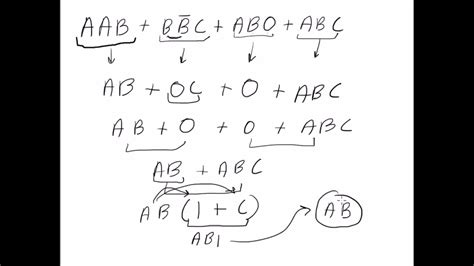 AAB + BB̄C + AB0 + ABC
AB + 0C + 0 + ABC
AB + 0 + 0 + ABC
AB + ABC
AB (1 + C)
AB1
AB